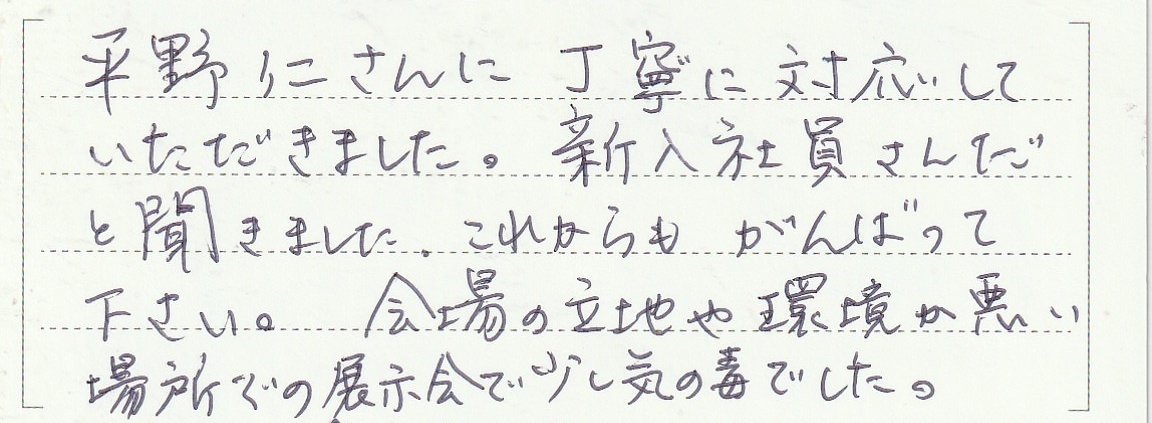 平野仁さんに 丁寧に対応して
いただきました。新入社員さんだ
と聞きました。これからも がんばって
下さい。 会場の立地や環境が悪い
場所での展示会で少し気の毒でした。